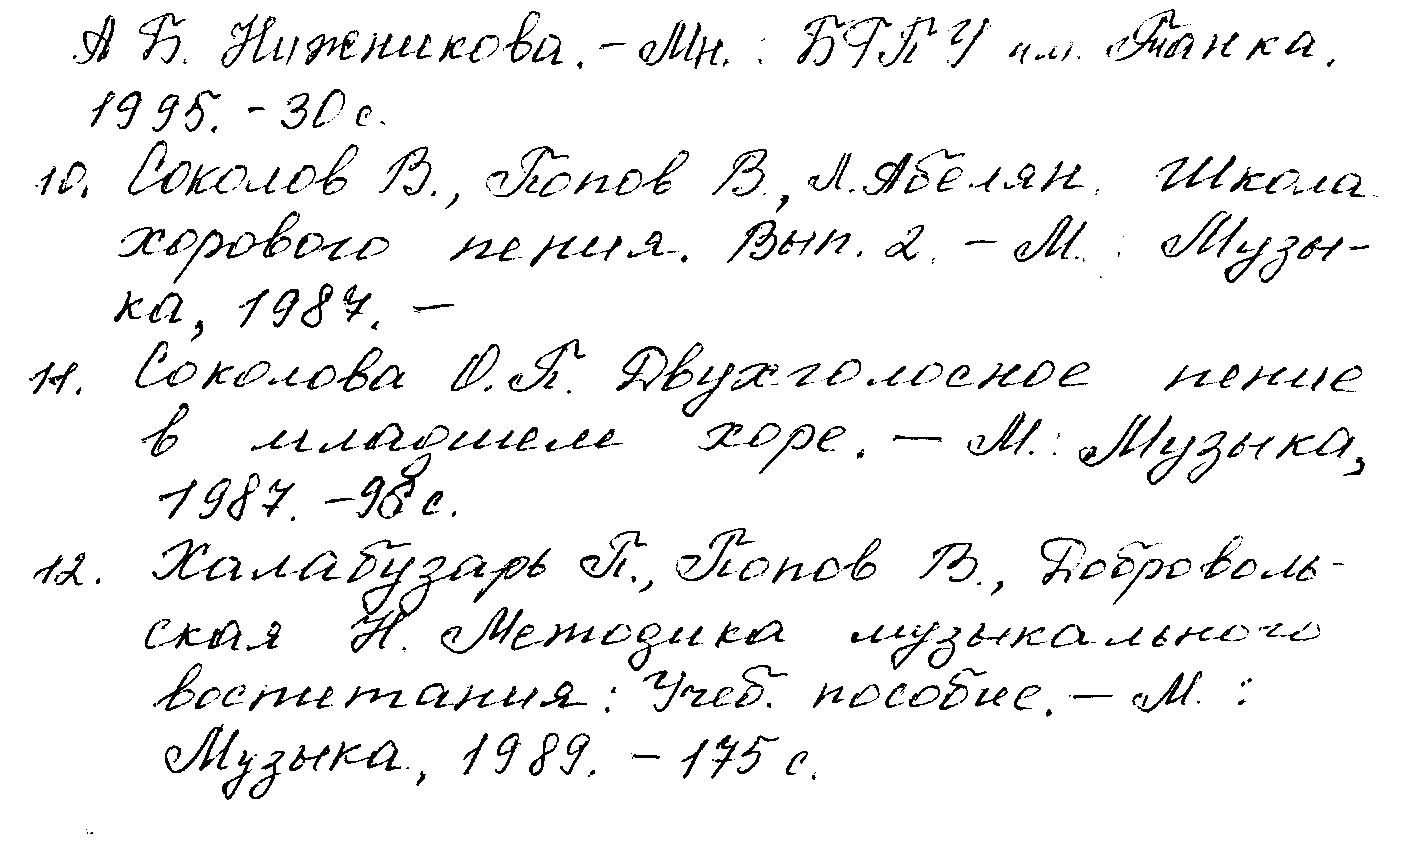 А Б. Нижникова. – Мн. : БГПУ им. Танка.
1995. – 30 с.
10. Соколов В., Попов В., Л. Абелян. Школа
хорового пения. Вып. 2. – М. : Музы-
ка, 1987. –
11. Соколова О.П. Двухголосное пение
в младшем хоре. – М. : Музыка,
1987. – с.
12. Халабузарь П., Попов В., Доброволь-
ская Н. Методика музыкального
воспитания : Учеб. пособие. – М. :
Музыка, 1989. – 175 с.